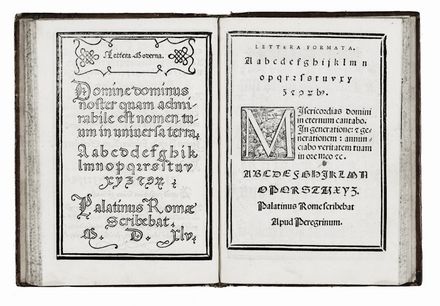 Lettera Moderna.
Domine dominus
noster quam admi-
rabile est nomen tu-
um in universa terra.
Aabcdefghijk
lmnopqrsstuv
xyz
Palatinus Romæ
Scribebat
M. D. xlv.
LETTERA FORMATA.
Aabcdefghijklmn
opqrsstuvxy
Misericordias Domini
in eternum cantabo.
In generatione: z ge-
nerationem: annun-
ciabo veritatem tuam
in ore meo zc.
ABCDEFGHIJKLMN
OPQRSTUXYZ.
Palatinus Rome scribebat
Apud Peregrinum.